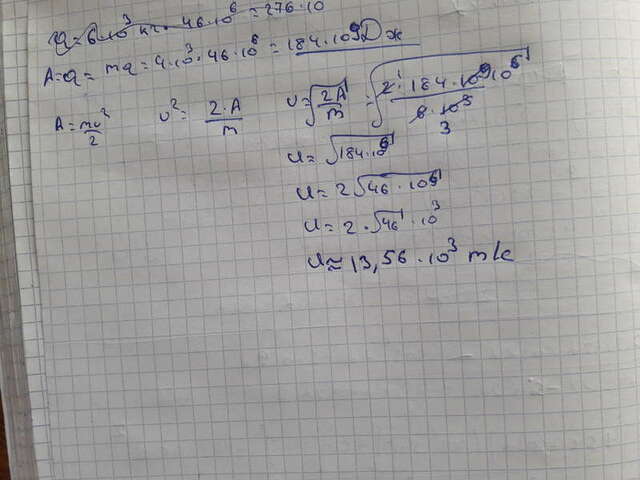 Q = 6·10³ кг · 46·10⁶ = 276·10
A=Q= mq = 4·10³·46·10⁶ = 184·10⁹ Дж
A = mv²/2 v² = 2·A/m v = √(2A/m) = √(2·184·10⁹10⁶/6·10³ 3
v = √184·10⁶
v = 2√46·10⁶
v = 2·√46·10³
v ≈ 13,56·10³ m/c